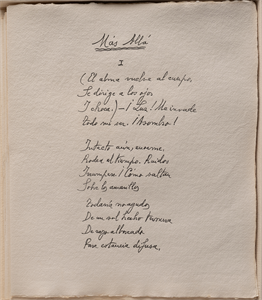 Más Allá
I
(El alma vuelve al cuerpo,
Se dirige a los ojos
Y choca.) – ¡Luz! Me invade
Todo mi ser. ¡Asombro!
Intacto aún, enorme,
Rodea el tiempo. Ruidos
Irrumpen. ¡Cómo saltan
Sobre los amarillos
Todavía no agudos
De un sol hecho ternura
De rayo alboreado
Para estancia difusa,